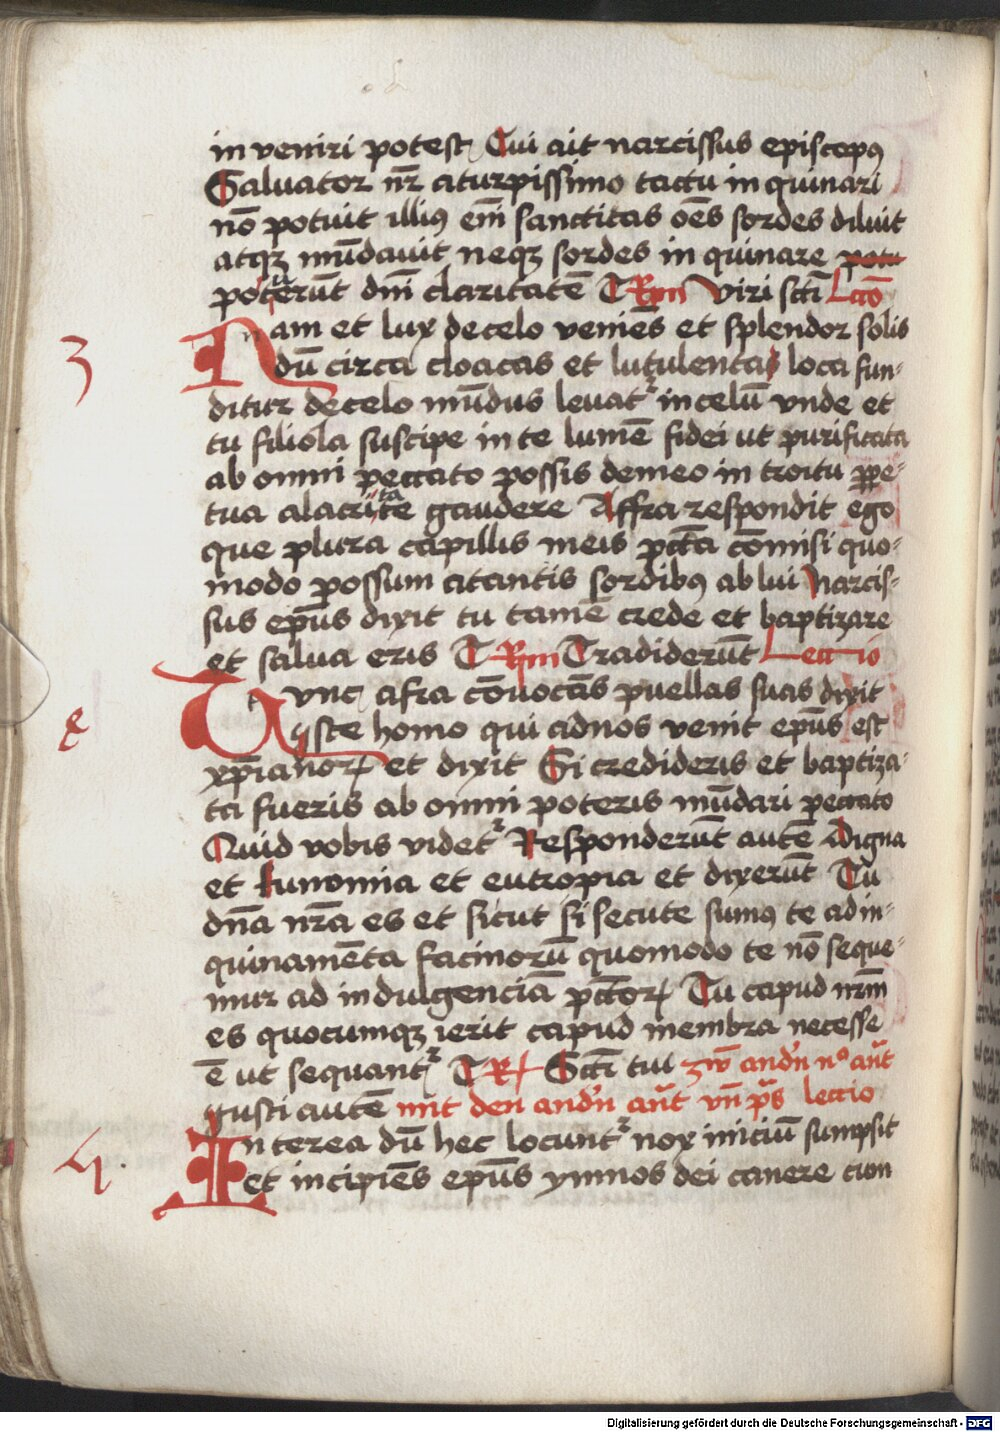 in veniri potest Cui ait narcissus episcopꝰ
Saluator nr̄ aturpissimo tactu in quinari
nō potuit illiꝰ em̄ sanctitas oēs sordes diluit
atqꝫ mūdauit neqꝫ sordes in quinare potu
poterūt dm̄ claritatē Rm Viri scti Lcō
3 Nam et lux decelo veniēs et splendor solis
dū circa cloacas et lutulentas loca fun-
ditur decelo mūdus leuatʳ incelū vnde et
tu filiola suscipe in te lumē fidei ut purificata
ab omni peccato possis demeo in troitu ꝑpe-
tua alacritate gaudere Affra respondit ego
que plura capillis meis pctā cōmisi quo-
modo possum atantis sordibꝰ ablui Narcis-
sus ep̄us dixit tu tamē crede et baptizare
et salua eris Rm Tradiderūt Lectio
Tunc afra cōuocās puellas suas dixit
iste homo qui adnos venit ep̄us est
xp̄ianoꝝ et dixit Si credideris et baptiza-
ta fueris ab omni poteris mūdari peccato
Quid vobis videtʳ Responderūt autē Digna
et Eunomia et eutropia et dixerūt Tu
dn̄a nr̄a es et sicut si secute sumꝰ te ad in-
quinamēta facinorū quomodo te nō seque-
mur ad indulgenciā pctōꝝ Tu capud nr̄m
es quocumqꝫ ierit capud membra necesse
ē ut sequantʳ R Scti tui zw andn̄ nº aūt
iusti autē mit den andn̄ aūt vn̄ pꝰs lectio
4. In terea dū hec locuntʳ nox iniciū sumpsit
et incipiēs ep̄us ymnos dei canere cum
Digitalisierung gefördert durch die Deutsche Forschungsgemeinschaft - DFG